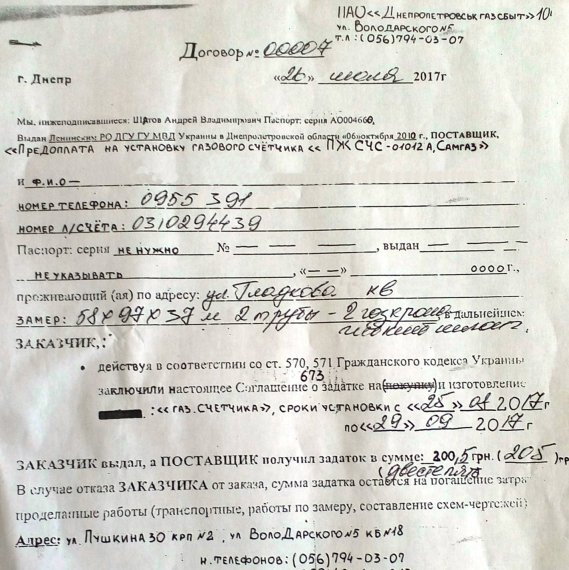 ПАО «Днепропетровськ газсбыт» 10
ул. Володарского №5
т.л: (056) 794-03-07
Договор № 00007
г. Днепр «26» июля 2017г
Мы, нижеподписавшиеся: Шагов Андрей Владимирович Паспорт: серия АО004660,
Выдан Ленинским РО ДГУ ГУ МВД Украины в Днепропетровской области «06»октября 2010 г., ПОСТАВЩИК,
«Предоплата на установку газового счётчика « ПЖ СЧС -01012 А, Самгаз»
и ф.и.о —
номер телефона: 0955 391
номер л/счёта: 0310294439
Паспорт: серия не нужно № — — — —, выдан — — —
не указывать, «— —» 0000г.,
проживающий (ая) по адресу: ул. Гладкова кв
Замер: 58х97х37 м 2 трубы – 2 в дальнейшем
ЗАКАЗЧИК,:
• действуя в соответствии со ст. 570, 571 Гражданского кодекса Украины
673
заключили настоящее Соглашение о задатке на (покупку) и изготовление
: «газ. счетчика», сроки установки с «25» 08 2017г
по «29» 09 2017г
ЗАКАЗЧИК выдал, а ПОСТАВЩИК получил задаток в сумме: 200,5 грн. (205) гр
(двести пять
В случае отказа ЗАКАЗЧИКА от заказа, сумма задатка остаётся на погашение затра
проделанные работы (транспортные, работы по замеру, составление схем-чертежей)
Адрес: ул. Пушкина 30 крп №2, ул Володарского №5 кб №18
н. телефонов: (056) 794-03-07